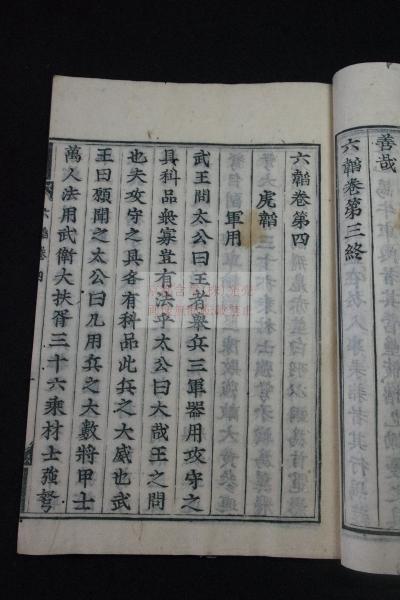 善哉
六韜卷第三終
六韜卷第四
虎韜
軍用
武王問太公曰王者舉兵三軍器用攻守之
具科品衆寡豈有法乎太公曰大哉王之問
也夫攻守之具各有科品此兵之大威也武
王曰願聞之太公曰凡用兵之大數將甲士
萬人法用武衛大扶胥三十六乘材士强弩
六韜卷四